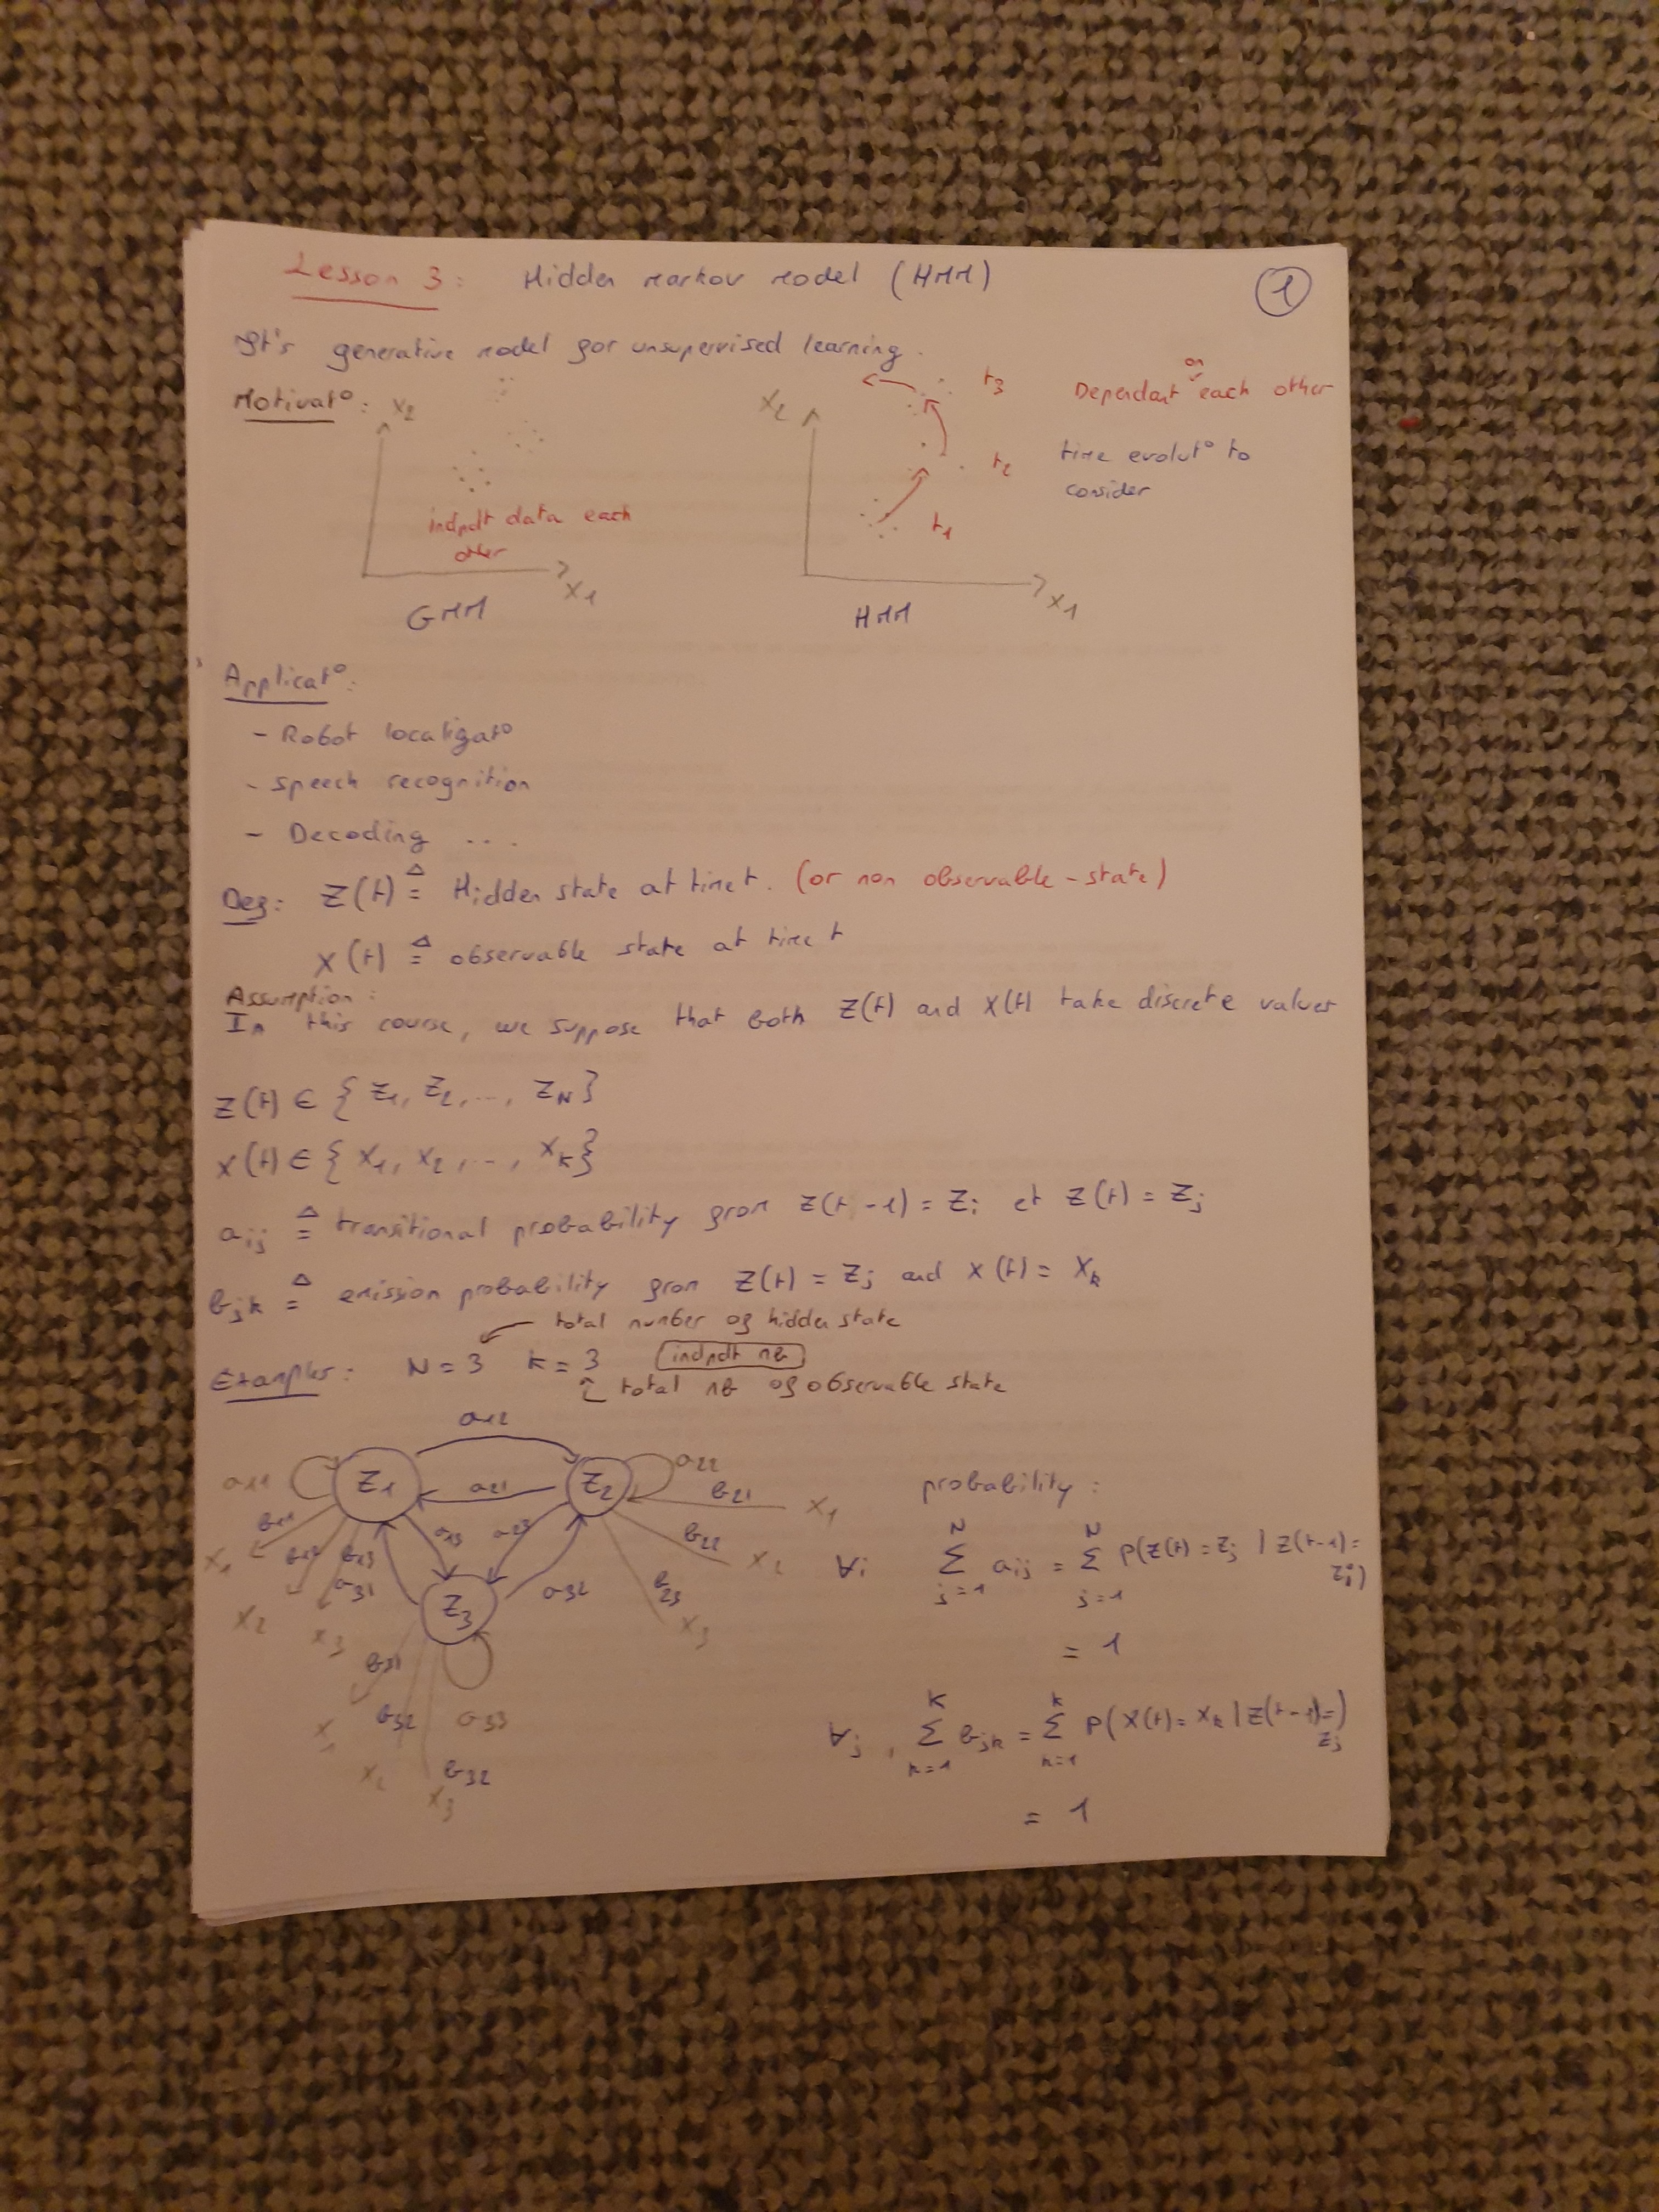 Lesson 3: Hidden Markov Model (HMM)
1
It's generative model for unsupervised learning.
Motivat°:
X2
indpdt data each
other
X1
GMM
X2
t3
t2
t1
X1
HMM
Dependant on each other
time evolut° to
consider
Applicat°:
- Robot localizat°
- Speech recognition
- Decoding ...
Def: Z(t) ≜ Hidden state at time t. (or non observable-state)
X(t) ≜ observable state at time t
Assumption:
In this course, we suppose that both Z(t) and X(t) take discrete values
Z(t) ∈ { Z1, Z2, ..., ZN}
X(t) ∈ { X1, X2, ..., XK}
aij ≜ transitional probability from Z(t-1) = Zi et Z(t) = Zj
bjk ≜ emission probability from Z(t) = Zj and X(t) = Xk
total number of hidden state
Examples: N = 3 K = 3 indpdt nb
total nb of observable state
a12
a11 Z1 a21 Z2 a22
b21 X1
b11 b12 b13 a13 a23 b22 X2
X1 a31 a32 b23
X2 X3 Z3 X3
b31
b32 a33
X1 X2 b32
X3
probability:
∀i ∑ j=1 N aij = ∑ j=1 N P(Z(t) = Zj | Z(t-1) = Zi)
= 1
∀j, ∑ k=1 K bjk = ∑ k=1 K P(X(t) = Xk | Z(t-1) = Zj)
= 1